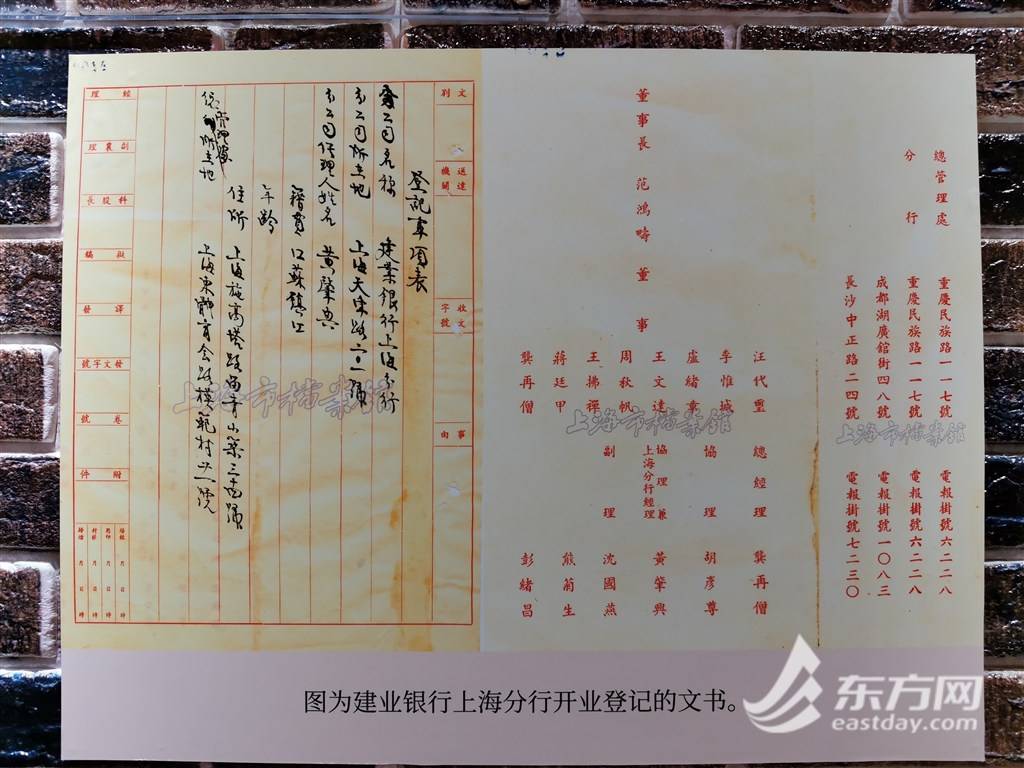 總管理處　重慶民族路一一七號　電報掛號六二二八
分行　重慶民族路一一七號　電報掛號六二二八
成都湖廣館街四八號　電報掛號一〇八三
長沙中正路二四號　電報掛號七二三〇
董事長　范鴻疇　董事
汪代璽　總經理　龔再僧
李惟城
盧緒章　協理　胡彥尊
王文達　協理兼上海分行經理　黃肇興
周秋帆
王拂禪　副理　沈國燕
蔣廷甲　熊菊生
龔再僧　彭緒昌
文別　送達機關　收文字號　事由
登記事項表
公司名稱　建業銀行上海分行
本公司所在地　上海天津路二〇一號
本公司經理人姓名　黃肇興
籍貫　江蘇鎮江
年齡
住所　上海施高塔路
經理　副襄理　科股長　擬稿　譯發　發文字號　卷號　附件
上海市檔案館
上海市檔案館
上海市檔案館
图为建业银行上海分行开业登记的文书。
东方网
eastday.com